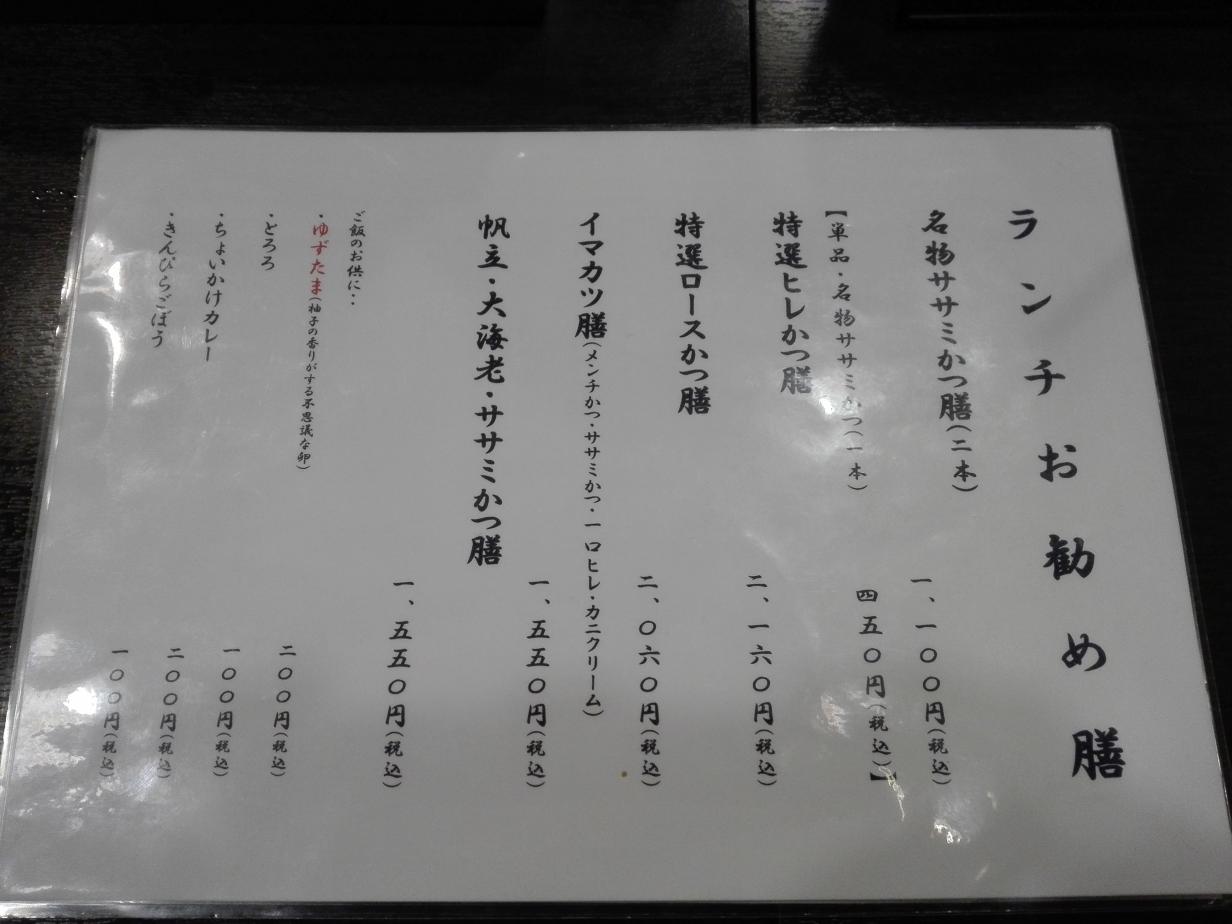 ランチお勧め膳
名物ササミかつ膳(二本)
一、一〇〇円(税込)
【単品・名物ササミかつ(一本)
四五〇円(税込)】
特選ヒレかつ膳
二、一六〇円(税込)
特選ロースかつ膳
二、〇六〇円(税込)
イマカツ膳(メンチかつ・ササミかつ・一口ヒレ・カニクリーム)
一、五五〇円(税込)
帆立・大海老・ササミかつ膳
一、五五〇円(税込)
ご飯のお供に・・
・ゆずたま(柚子の香りがする不思議な卵)
二〇〇円(税込)
・とろろ
一〇〇円(税込)
・ちょいかけカレー
二〇〇円(税込)
・きんぴらごぼう
一〇〇円(税込)